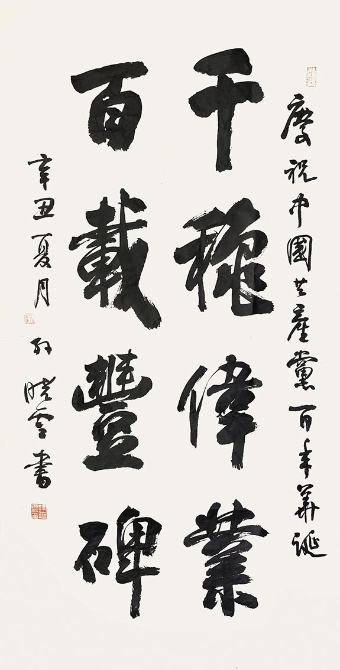 慶祝中國共產黨百年華誕
千穐偉業
百載豐碑
辛丑夏月孫曉雲書